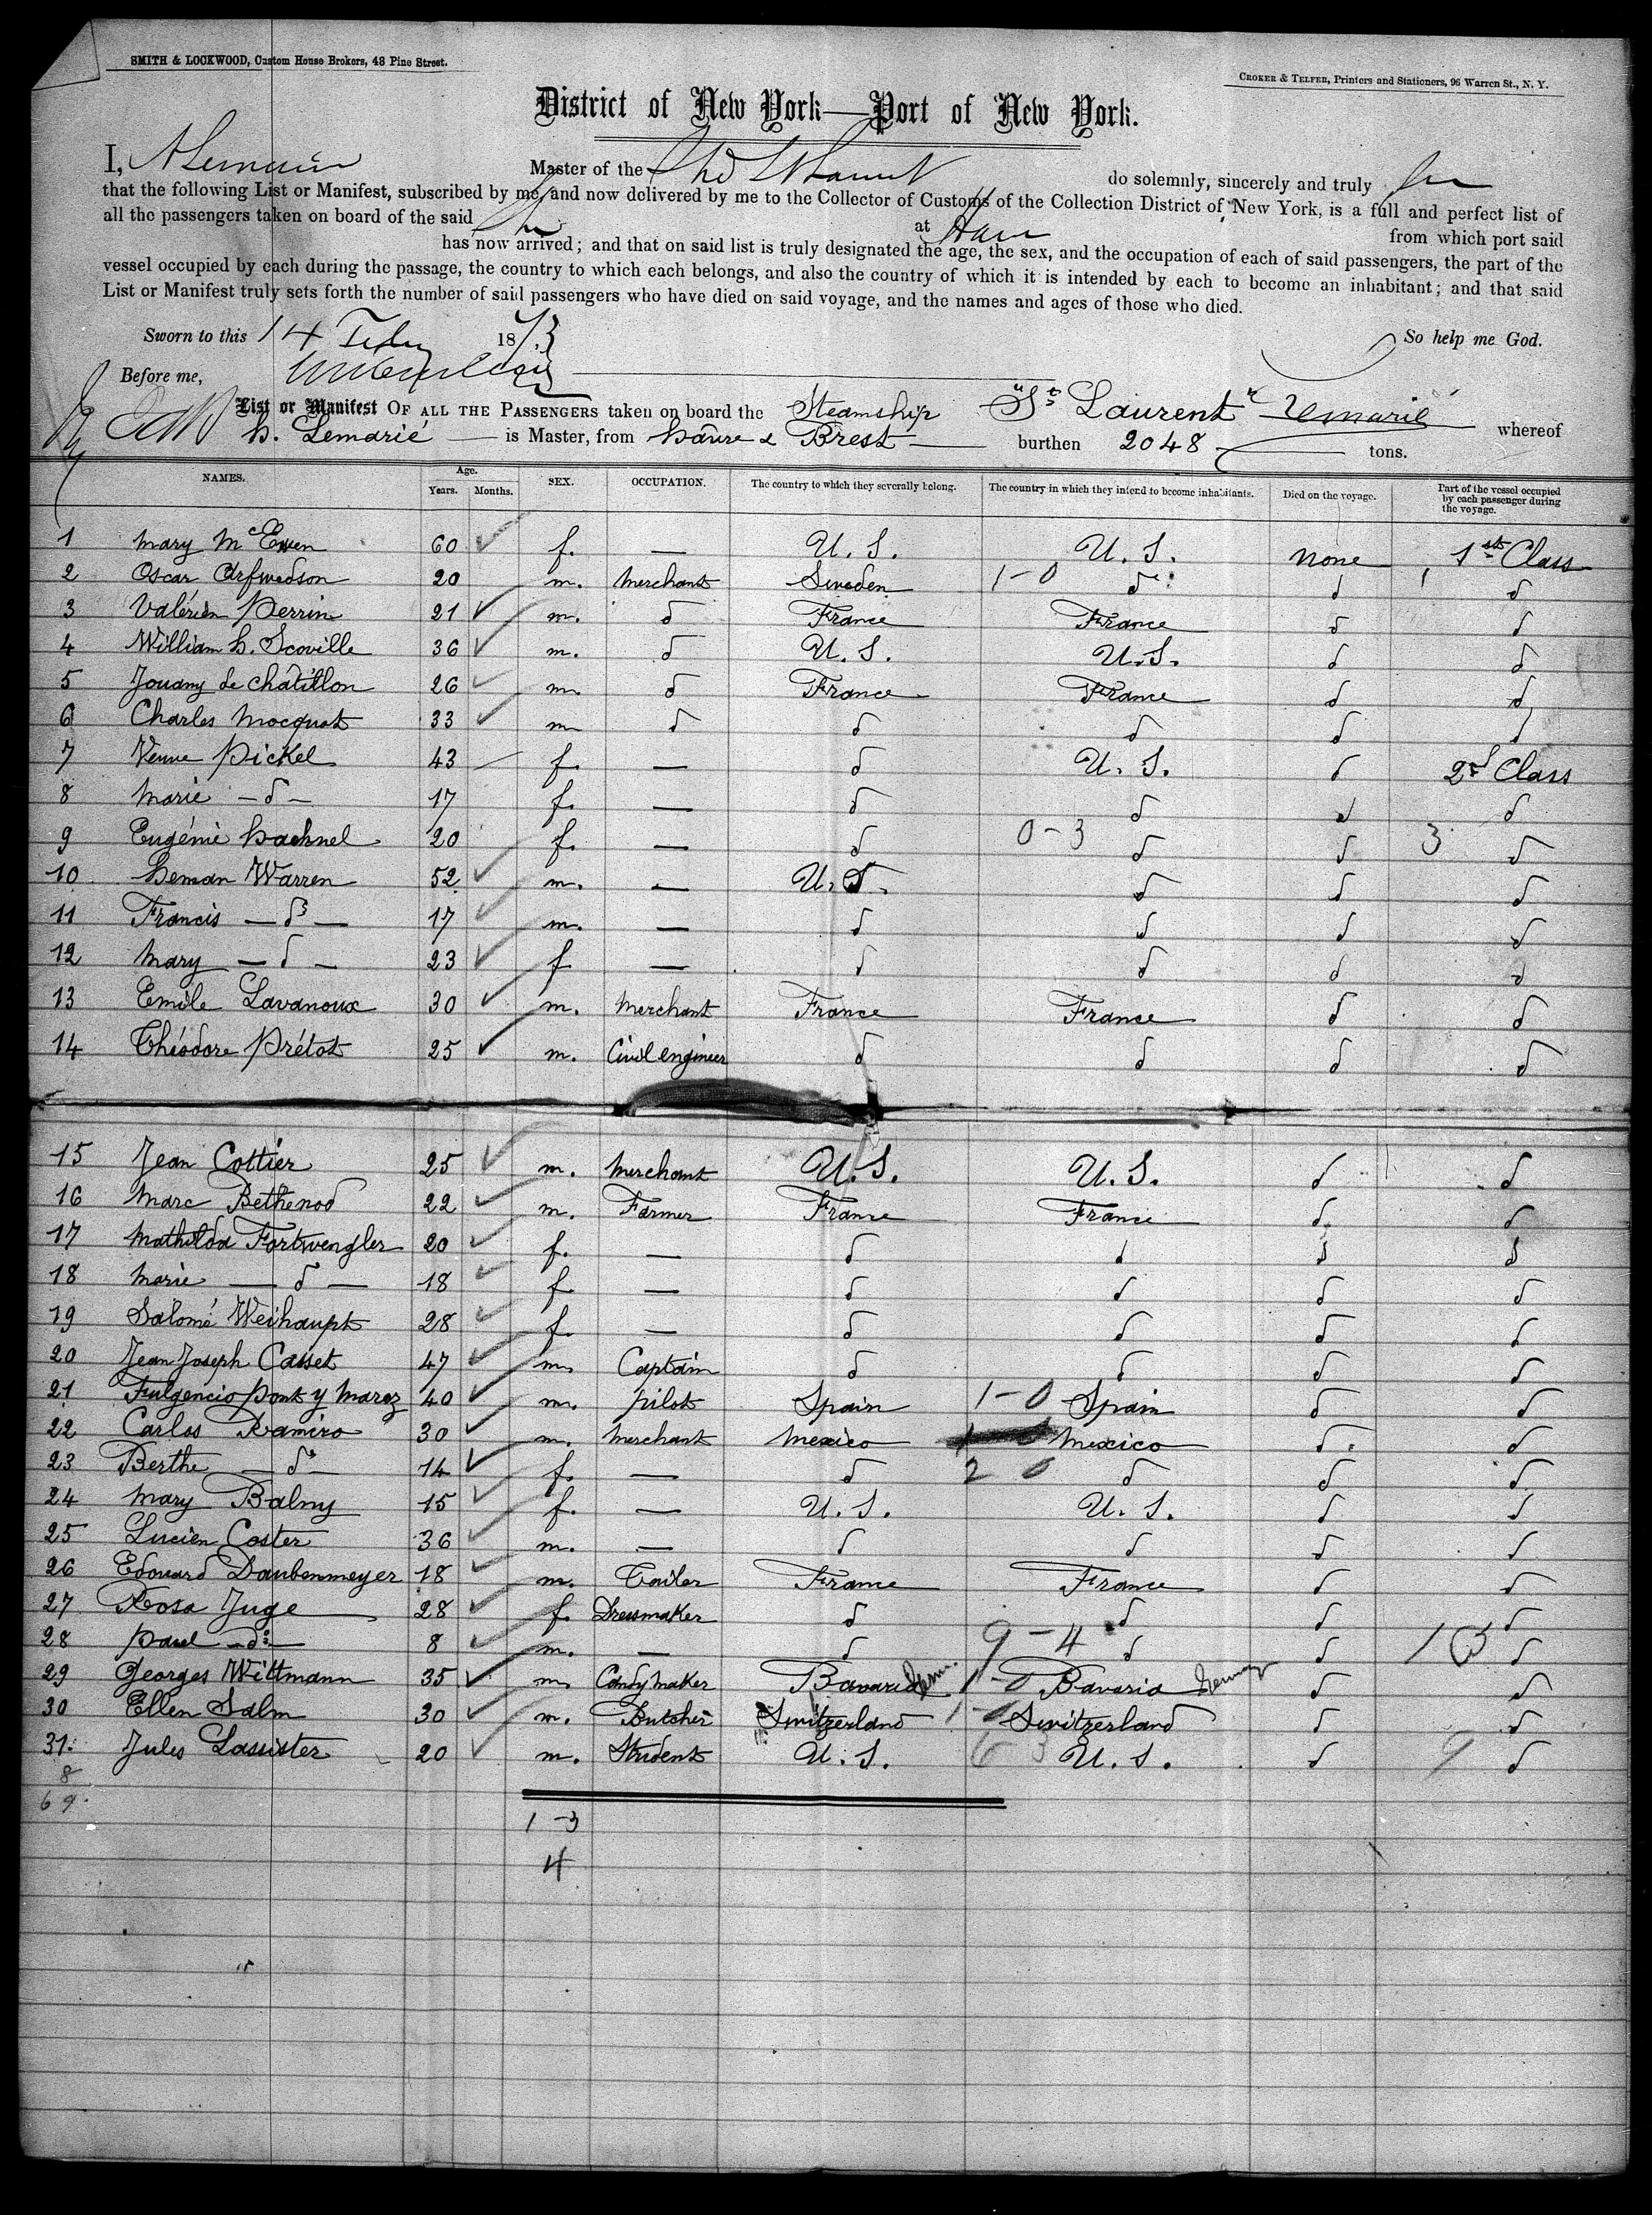 SMITH & LOCKWOOD, Custom House Brokers, 48 Pine Street.
CROKER & TELFER, Printers and Stationers, 96 Warren St., N. Y.
District of New York—Port of New York.
I, Master of the do solemnly, sincerely and truly
that the following List or Manifest, subscribed by me, and now delivered by me to the Collector of Customs of the Collection District of New York, is a full and perfect list of
all the passengers taken on board of the said at from which port said
has now arrived; and that on said list is truly designated the age, the sex, and the occupation of each of said passengers, the part of the
vessel occupied by each during the passage, the country to which each belongs, and also the country of which it is intended by each to become an inhabitant; and that said
List or Manifest truly sets forth the number of said passengers who have died on said voyage, and the names and ages of those who died.
Sworn to this 14 Feby 1873 So help me God.
Before me,
List or Manifest OF ALL THE PASSENGERS taken on board the Steamship "St Laurent" Lemarié whereof
h. Lemarié — is Master, from hâvre & Brest — burthen 2048 tons.
NAMES. Age. Years. Months. SEX. OCCUPATION. The country to which they severally belong. The country in which they intend to become inhabitants. Died on the voyage. Part of the vessel occupied by each passenger during the voyage.
1 Mary McEwen 60 f. — U. S. U. S. none 1st Class
2 Oscar Arfwedson 20 m. merchant Sweden 1-0 do do do
3 Valérien Perrin 21 m. do France France do do
4 William h. Scoville 36 m. do U. S. U. S. do do
5 Jouany de Châtillon 26 m. do France France do do
6 Charles Mocquot 33 m do do do do do
7 Veuve Pickel 43 f. — do U. S. do 2d Class
8 Marie —do— 17 f. — do do do do
9 Eugénie hachnel 20 f. — do 0-3 do do 3 do
10 heman Warren 52 m. — U. S. do do do
11 Francis —do— 17 m. — do do do do
12 Mary —do— 23 f — do do do do
13 Emile Lavanoux 30 m. merchant France France do do
14 Théodore Prétot 25 m. Civil engineer do do do do
15 Jean Cottier 25 m. merchant U. S. U. S. do do
16 Marc Bethenod 22 m. Farmer France France do do
17 Mathilda Fortwengler 20 f. — do do do do
18 Marie —do— 18 f — do do do do
19 Salomé Weihaupt 28 f. — do do do do
20 Jean Joseph Casset 47 m. Captain do do do do
21 Fulgencio Pont y Marez 40 m. pilot Spain 1-0 Spain do do
22 Carlos Ramiro 30 m. merchant Mexico Mexico do do
23 Berthe —do— 14 f. — do 2 0 do do do
24 Mary Balmy 15 f. — U. S. U. S. do do
25 Lucien Coster 36 m. — do do do do
26 Edouard Daubenmeyer 18 m. Tailer France France do do
27 Rosa Juge 28 f. Dressmaker do do do do
28 Paul —do— 8 m. — do 9-4 do do do
29 Georges Wittmann 35 m. Candy maker Bavaria Germ. 1-0 Bavaria Germany do do
30 Ellen Salm 30 m. Butcher Switzerland 1-0 Switzerland do do
31. Jules Lassister 20 m. Student U. S. 6 3 U. S. do 9 do
8
69.
1-3
4